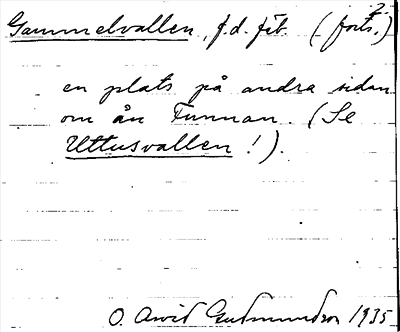 Gammelvallen, f.d. fäb. (forts.) 2
en plats på andra sidan
om ån Tunnan. (Se
Uttusvallen!).
O. Arvid Gudmundson 1935